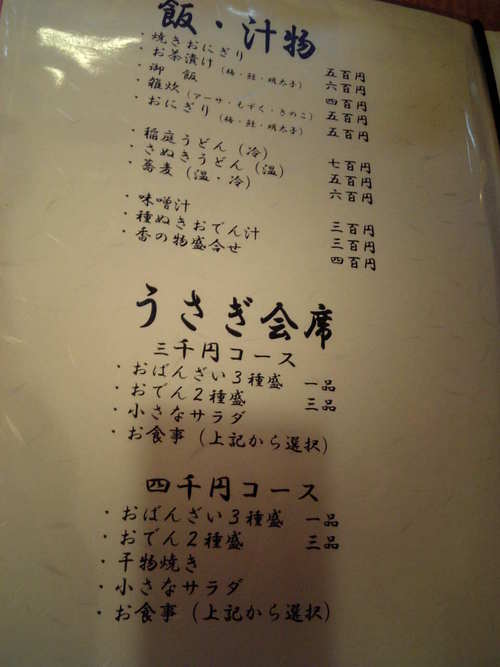 飯・汁物
・焼きおにぎり 五百円
・お茶漬け（梅・鮭・明太子） 六百円
・御飯 四百円
・雑炊（アーサ・もずく・きのこ） 五百円
・おにぎり（梅・鮭・明太子） 五百円
・稲庭うどん（冷） 七百円
・さぬきうどん（温） 五百円
・蕎麦（温・冷） 六百円
・味噌汁 三百円
・種ぬきおでん汁 三百円
・香の物盛合せ 四百円
うさぎ会席
三千円コース
・おばんざい3種盛 一品
・おでん2種盛 三品
・小さなサラダ
・お食事（上記から選択）
四千円コース
・おばんざい3種盛 一品
・おでん2種盛 三品
・干物焼き
・小さなサラダ
・お食事（上記から選択）